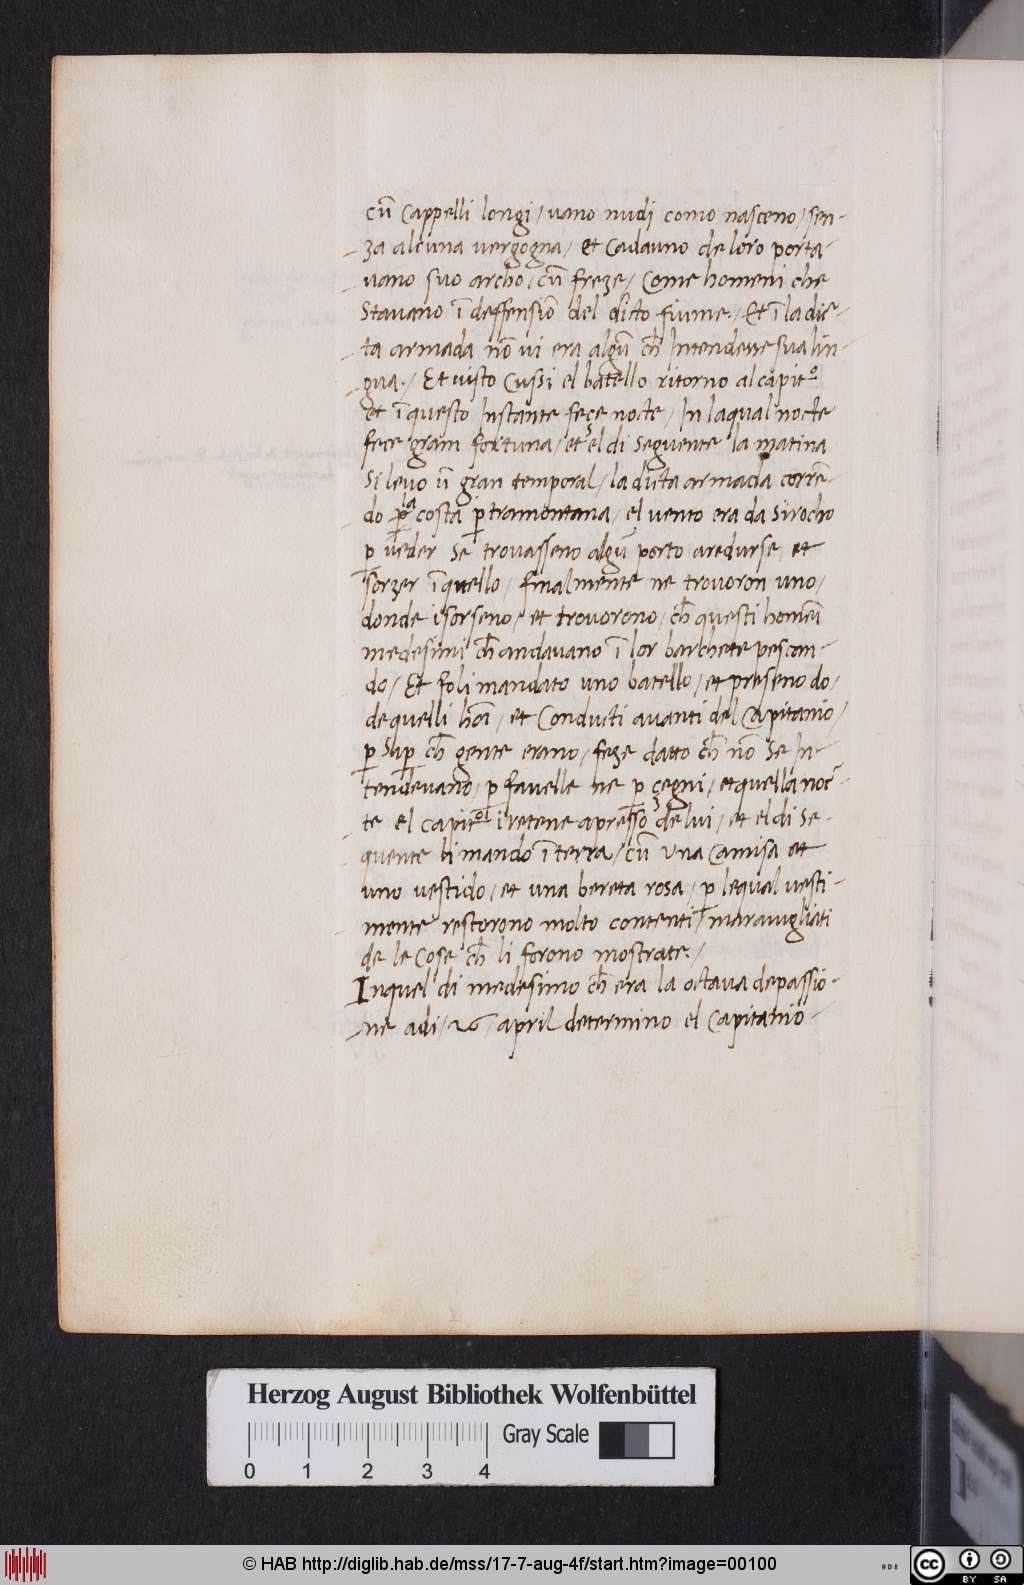 cũ cappelli longi / vano nudi como nasceno / sen-
-za alcuna vergogna / et cadauno de loro porta-
-vano suo archo / cũ freze / come homeni che
stavano ĩ deffensiõ del dicto fiume. / Et ĩ la dic-
-ta armada nõ vi era algũ ch̃ Intendesse sua lin-
-gua. / Et visto cussi el batello ritorno al capitº
et ĩ questo Instante feçe nocte / In la qual nocte
fece gram fortuna / et el di seguente la matina
si levo ũ gran temporal / la dicta armada corrẽ-
do ꝑ la costa ꝑ tramontana / el vento era da Sirocho
ꝑ veder se trovasseno algũ porto aredurse et
sorzer ĩ quello / finalmente ne trovoron uno /
donde i sorseno / et trovorono / ch̃ questi homeĩ
medesimi ch̃ andavano ĩ lor barchete pescan-
do / Et foli mandato uno batello / et preseno do /
de quelli hoĩ / et conducti avanti del Capitanio /
ꝑ saꝑ ch̃ gente erano / feze datto ch̃ nõ se In-
tendevano / ꝑ favelle ne ꝑ çegni / et quella noc-
-te el capitº i retene apresso de lui / et el di se-
-quente li mando ĩ terra / cũ una camisa et
uno vestido / et una bereta rosa / ꝑ le qual vesti-
-mente restorono molto contenti / maravigliati
de le cose ch̃ li forono mostrate. /
In quel di medesimo ch̃ era la octava de passio-
-ne adi / 26 / april determino el Capitanio -
Herzog August Bibliothek Wolfenbüttel
Gray Scale
0 1 2 3 4
© HAB http://diglib.hab.de/mss/17-7-aug-4f/start.htm?image=00100
WDB
cc BY SA